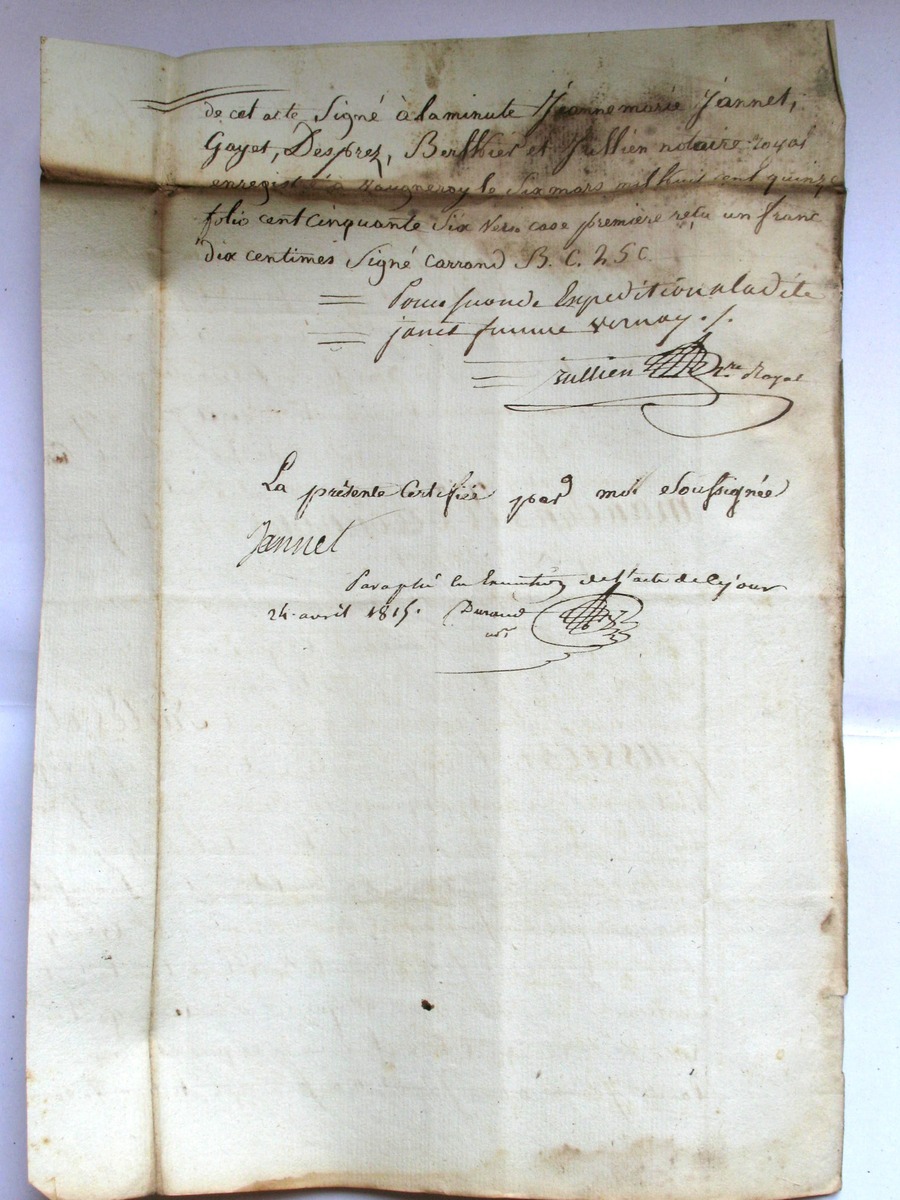 de cet acte, Signé à la minute Jeannemarie Jannet,
Gayet, Desprez, Berthier et Jullien notaire royal
enregistré à Vaugneray le six mars mil huit cent quinze
folio cent cinquante six vers. case première reçu un franc
dix centimes Signé Carrand B. C. 25 C.
Pour seconde Expedition a ladite
janet femme vernay ./.
Jullien nre Royal
La présente Certifiée par moi Soussignée
Jannet
Paraphé en de l'acte de ce jour
24 avril 1815. Durand
nre